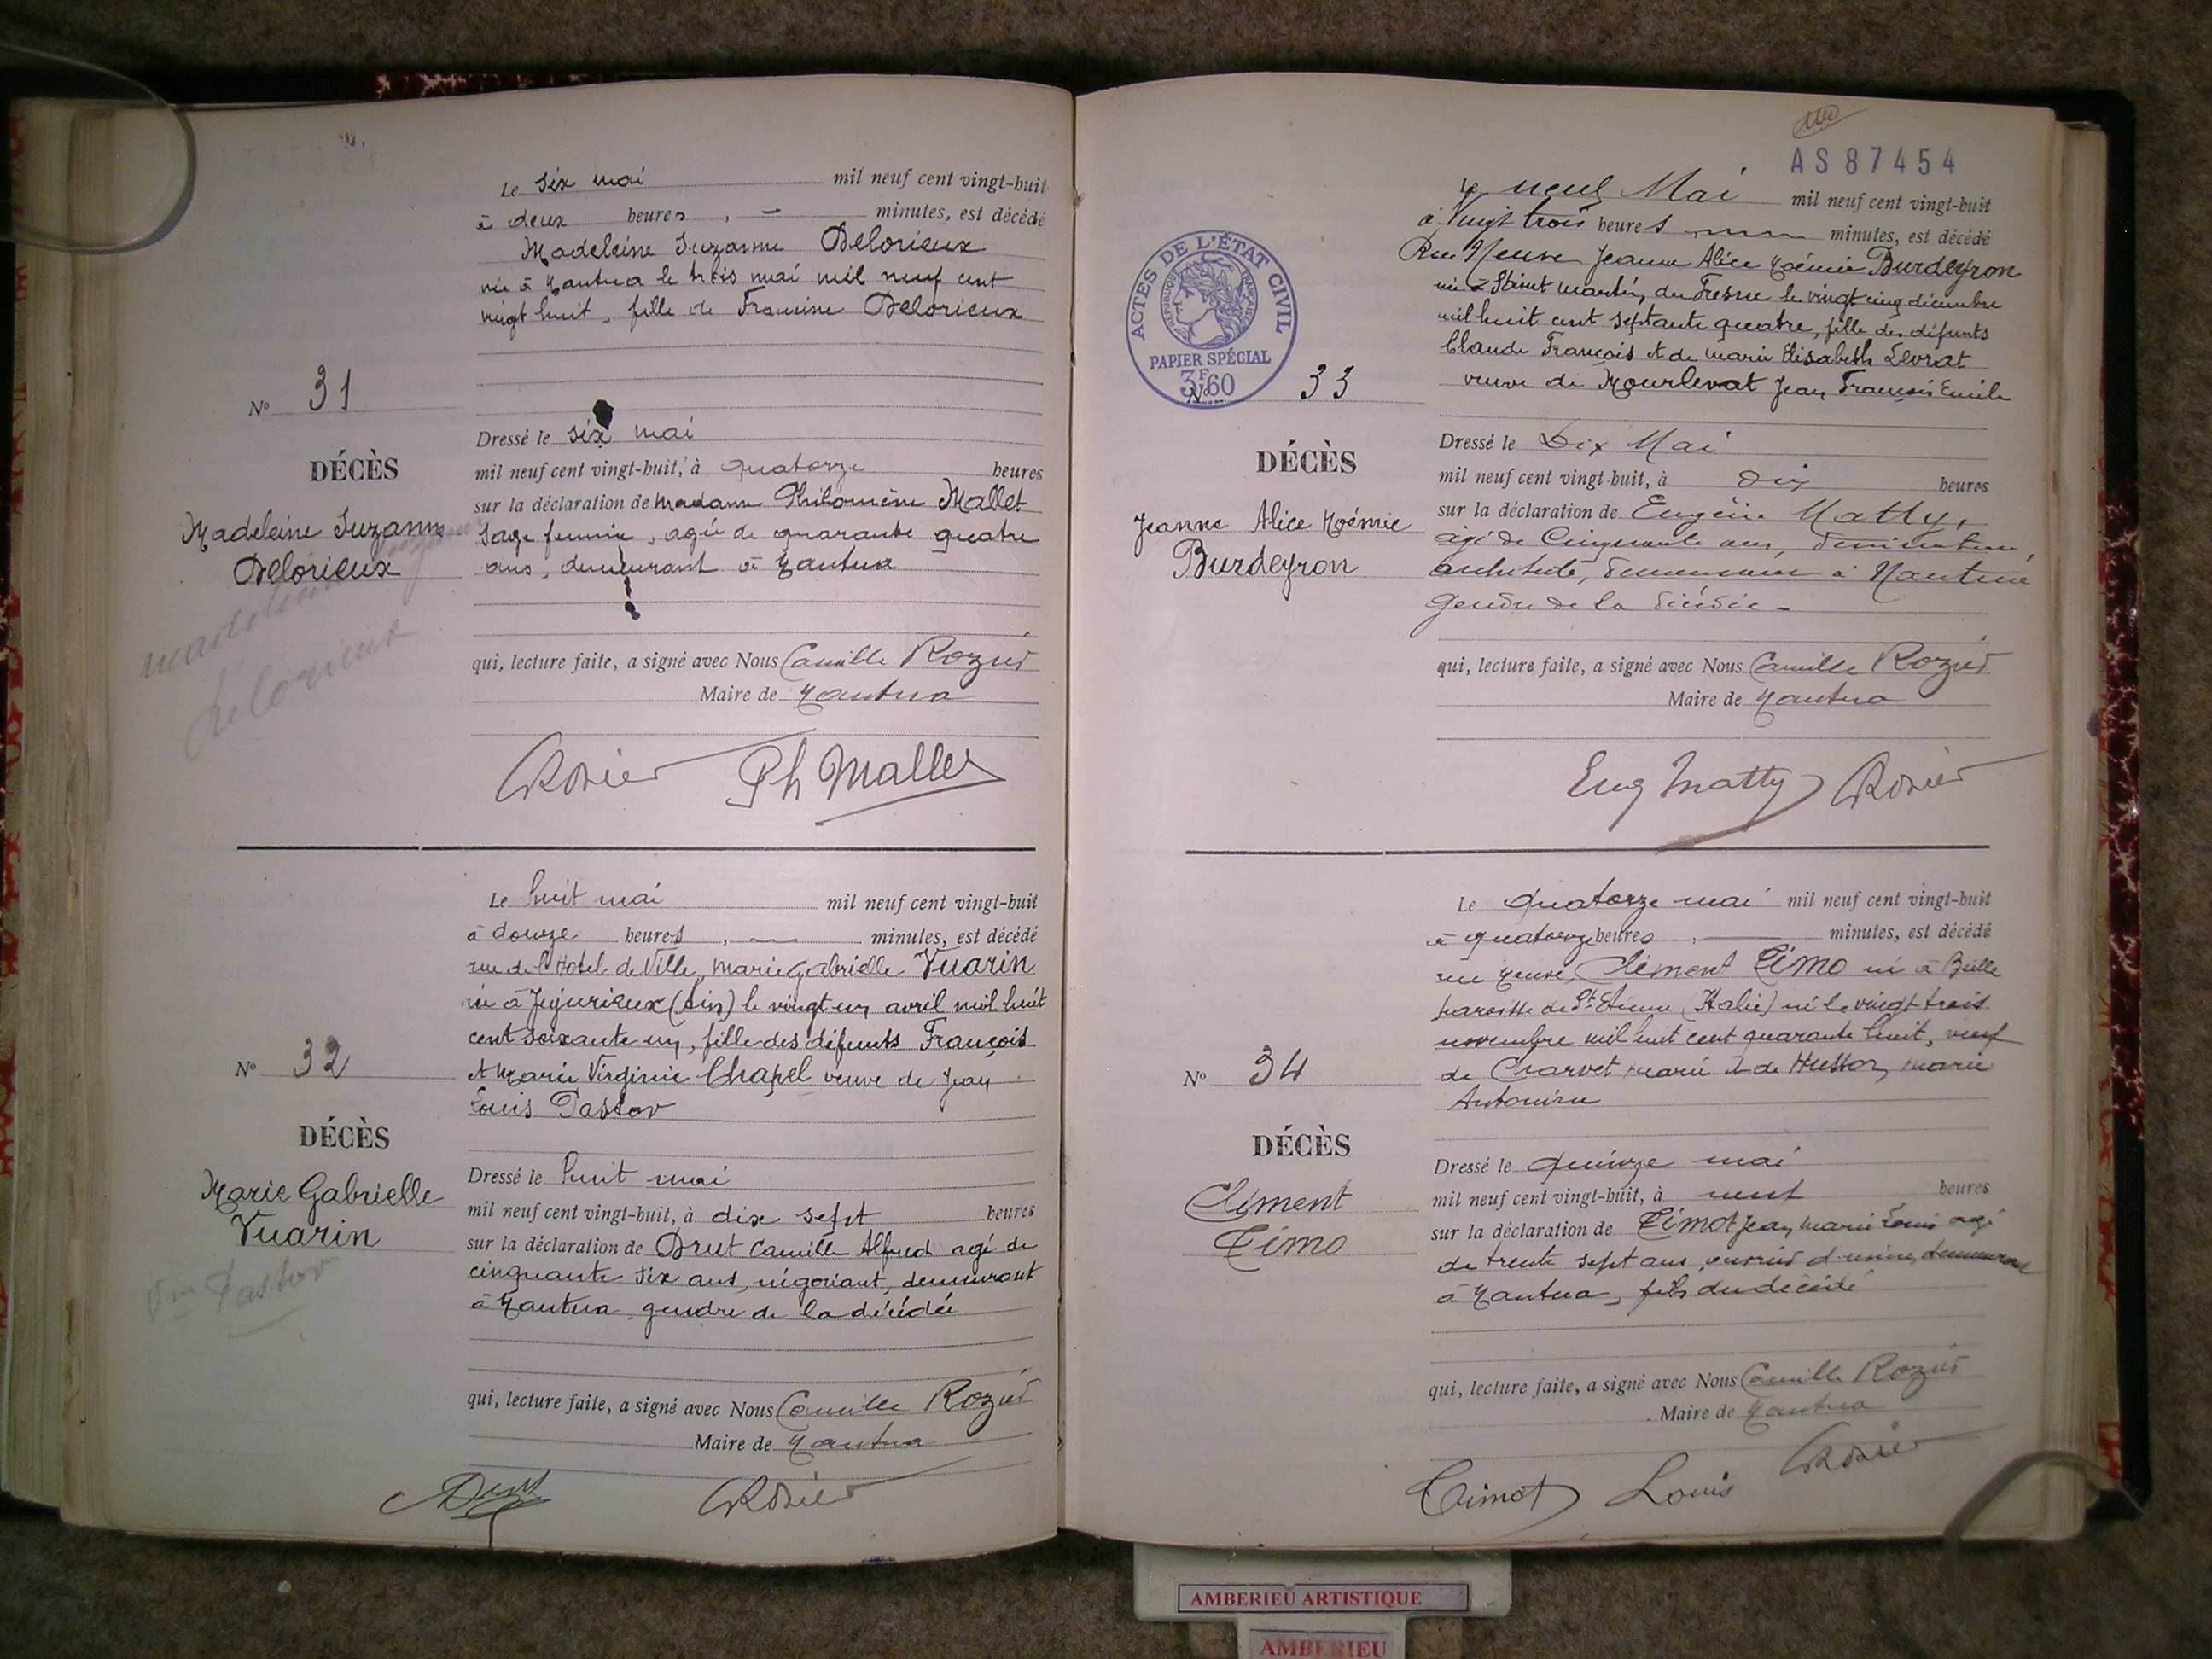 Le six mai mil neuf cent vingt-huit
à deux heures, — minutes, est décédé
Madeleine Suzanne Delorieux
née à Nantua le trois mai mil neuf cent
vingt huit, fille de Francine Delorieux
N° 31
DÉCÈS
Madeleine Suzanne
Delorieux
Madeleine Suzanne
Delorieux
Dressé le six mai
mil neuf cent vingt-huit, à quatorze heures
sur la déclaration de Madame Philomène Mallet
sage femme, agée de quarante quatre
ans, demeurant à Nantua
qui, lecture faite, a signé avec Nous Camille Rozier
Maire de Nantua
CRosier Ph Mallet
Le huit mai mil neuf cent vingt-huit
à douze heures, — minutes, est décédé
rue de l'Hotel de Ville, Marie Gabrielle Vuarin
née à Jujurieux (Ain) le vingt un avril mil huit
cent soixante un, fille des défunts François
et Marie Virginie Chapel veuve de Jean
Louis Pastor
N° 32
DÉCÈS
Marie Gabrielle
Vuarin
Vve Pastor
Dressé le huit mai
mil neuf cent vingt-huit, à dix sept heures
sur la déclaration de Drut Camille Alfred agé de
cinquante six ans, négociant, demeurant
à Nantua, gendre de la décédée
qui, lecture faite, a signé avec Nous Camille Rozier
Maire de Nantua
Drut CRosier
AS87454
Le neuf Mai mil neuf cent vingt-huit
à Vingt trois heures minutes, est décédé
Rue Neuve Jeanne Alice Noémie Burdeyron
née à Saint Martin du Fresne le vingt cinq décembre
mil huit cent septante quatre, fille des défunts
Claude François et de Marie Elisabeth Levrat
veuve de Mourlevat Jean François Emile
ACTES DE L'ÉTAT CIVIL
RÉPUBLIQUE FRANÇAISE
PAPIER SPÉCIAL
3F,60
N° 33
DÉCÈS
Jeanne Alice Noémie
Burdeyron
Dressé le Dix Mai
mil neuf cent vingt-huit, à dix heures
sur la déclaration de Eugène Matty,
agé de Cinquante ans,
architecte, à Nantua
gendre de la décédée -
qui, lecture faite, a signé avec Nous Camille Rozier
Maire de Nantua
Eug Matty CRosier
Le quatorze mai mil neuf cent vingt-huit
à quatorze heures, — minutes, est décédé
rue Neuve, Clément Timo né à
paroisse de St Etienne (Italie) né le vingt trois
novembre mil huit cent quarante huit, veuf
de Charvet Marie et de Marie
Antonine
N° 34
DÉCÈS
Clément
Timo
Dressé le quinze mai
mil neuf cent vingt-huit, à neuf heures
sur la déclaration de Timot Jean Marie Louis agé
de trente sept ans, ouvrier d'usine, demeurant
à Nantua, fils du décédé
qui, lecture faite, a signé avec Nous Camille Rozier
Maire de Nantua
Timot Louis CRosier
AMBERIEU ARTISTIQUE
AMBERIEU